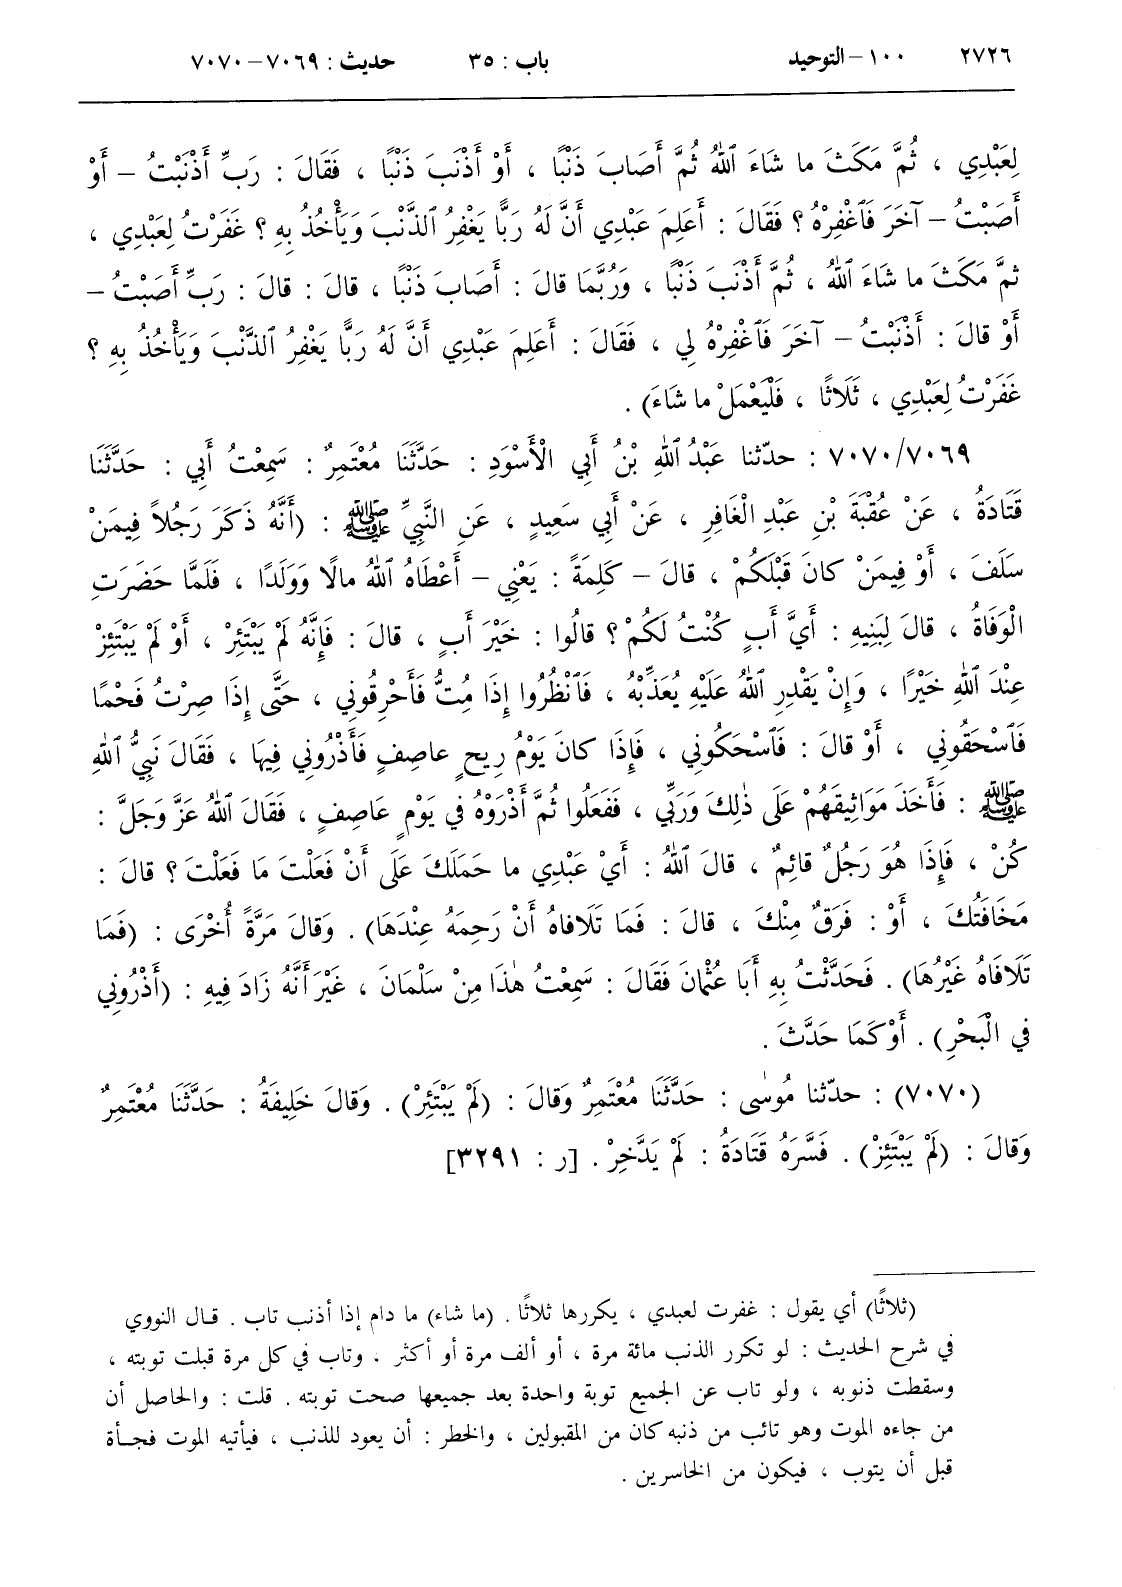 ٢٧٢٦ ١٠٠ – التوحيد باب : ٣٥ حديث : ٧٠٦٩ – ٧٠٧٠
لِعَبْدِي ، ثُمَّ مَكَثَ ما شَاءَ ٱللهُ ثُمَّ أَصَابَ ذَنْبًا ، أَوْ أَذْنَبَ ذَنْبًا ، فَقَالَ : رَبِّ أَذْنَبْتُ – أَوْ
أَصَبْتُ – آخَرَ فَٱغْفِرْهُ ؟ فَقَالَ : أَعَلِمَ عَبْدِي أَنَّ لَهُ رَبًّا يَغْفِرُ ٱلذَّنْبَ وَيَأْخُذُ بِهِ ؟ غَفَرْتُ لِعَبْدِي ،
ثمَّ مَكَثَ ما شَاءَ ٱللهُ ، ثُمَّ أَذْنَبَ ذَنْبًا ، وَرُبَّمَا قالَ : أَصَابَ ذَنْبًا ، قالَ : قالَ : رَبِّ أَصَبْتُ –
أَوْ قالَ : أَذْنَبْتُ – آخَرَ فَٱغْفِرْهُ لِي ، فَقَالَ : أَعَلِمَ عَبْدِي أَنَّ لَهُ رَبًّا يَغْفِرُ ٱلذَّنْبَ وَيَأْخُذُ بِهِ ؟
غَفَرْتُ لِعَبْدِي ، ثَلَاثًا ، فَلْيَعْمَلْ ما شَاءَ) .
٧٠٧٠/٧٠٦٩ : حدّثنا عَبْدُ ٱللهِ بْنُ أَبِي الْأَسْوَدِ : حَدَّثَنَا مُعْتَمِرٌ : سَمِعْتُ أَبِي : حَدَّثَنَا
قَتَادَةُ ، عَنْ عُقْبَةَ بْنِ عَبْدِ الْغَافِرِ ، عَنْ أَبِي سَعِيدٍ ، عَنِ النَّبِيِّ ﷺ : (أَنَّهُ ذَكَرَ رَجُلاً فِيمَنْ
سَلَفَ ، أَوْ فِيمَنْ كانَ قَبْلَكُمْ ، قالَ – كَلِمَةً : يَعْنِي – أَعْطَاهُ ٱللهُ مالًا وَوَلَدًا ، فَلَمَّا حَضَرَتِ
الْوَفَاةُ ، قالَ لِبَنِيهِ : أَيَّ أَبٍ كُنْتُ لَكُمْ ؟ قالُوا : خَيْرَ أَبٍ ، قالَ : فَإِنَّهُ لَمْ يَبْتَئِرْ ، أَوْ لَمْ يَبْتَئِزْ
عِنْدَ ٱللهِ خَيْرًا ، وَإِنْ يَقْدِرِ ٱللهُ عَلَيْهِ يُعَذِّبْهُ ، فَٱنْظُرُوا إِذَا مُتُّ فَأَحْرِقُونِي ، حَتَّى إِذَا صِرْتُ فَحْمًا
فَٱسْحَقُونِي ، أَوْ قالَ : فَٱسْحَكُونِي ، فَإِذَا كانَ يَوْمُ رِيحٍ عاصِفٍ فَأَذْرُونِي فِيهَا ، فَقَالَ نَبِيُّ ٱللهِ
ﷺ : فَأَخَذَ مَوَاثِيقَهُمْ عَلَى ذٰلِكَ وَرَبِّي ، فَفَعَلُوا ثُمَّ أَذْرَوْهُ فِي يَوْمٍ عَاصِفٍ ، فَقَالَ ٱللهُ عَزَّ وَجَلَّ :
كُنْ ، فَإِذَا هُوَ رَجُلٌ قائِمٌ ، قالَ ٱللهُ : أَيْ عَبْدِي ما حَمَلَكَ عَلَى أَنْ فَعَلْتَ مَا فَعَلْتَ ؟ قالَ :
مَخَافَتُكَ ، أَوْ : فَرَقٌ مِنْكَ ، قالَ : فَمَا تَلَافاهُ أَنْ رَحِمَهُ عِنْدَهَا) . وَقالَ مَرَّةً أُخْرَى : (فَمَا
تَلَافَاهُ غَيْرُهَا) . فَحَدَّثْتُ بِهِ أَبَا عُثْمانَ فَقَالَ : سَمِعْتُ هٰذَا مِنْ سَلْمَانَ ، غَيْرَ أَنَّهُ زَادَ فِيهِ : (أَذْرُونِي
فِي الْبَحْرِ) . أَوْ كَمَا حَدَّثَ .
(٧٠٧٠) : حدّثنا مُوسٰى : حَدَّثَنَا مُعْتَمِرٌ وَقالَ : (لَمْ يَبْتَئِرْ) . وَقالَ خَلِيفَةُ : حَدَّثَنَا مُعْتَمِرٌ
وَقالَ : (لَمْ يَبْتَئِزْ) . فَسَّرَهُ قَتَادَةُ : لَمْ يَدَّخِرْ . [ر : ٣٢٩١]
(ثلاثًا) أي يقول : غفرت لعبدي ، يكررها ثلاثًا . (ما شاء) ما دام إذا أذنب تاب . قال النووي
في شرح الحديث : لو تكرر الذنب مائة مرة ، أو ألف مرة أو أكثر . وتاب في كل مرة قبلت توبته ،
وسقطت ذنوبه ، ولو تاب عن الجميع توبة واحدة بعد جميعها صحت توبته . قلت : والحاصل أن
من جاءه الموت وهو تائب من ذنبه كان من المقبولين ، والخطر : أن يعود للذنب ، فيأتيه الموت فجأة
قبل أن يتوب ، فيكون من الخاسرين .